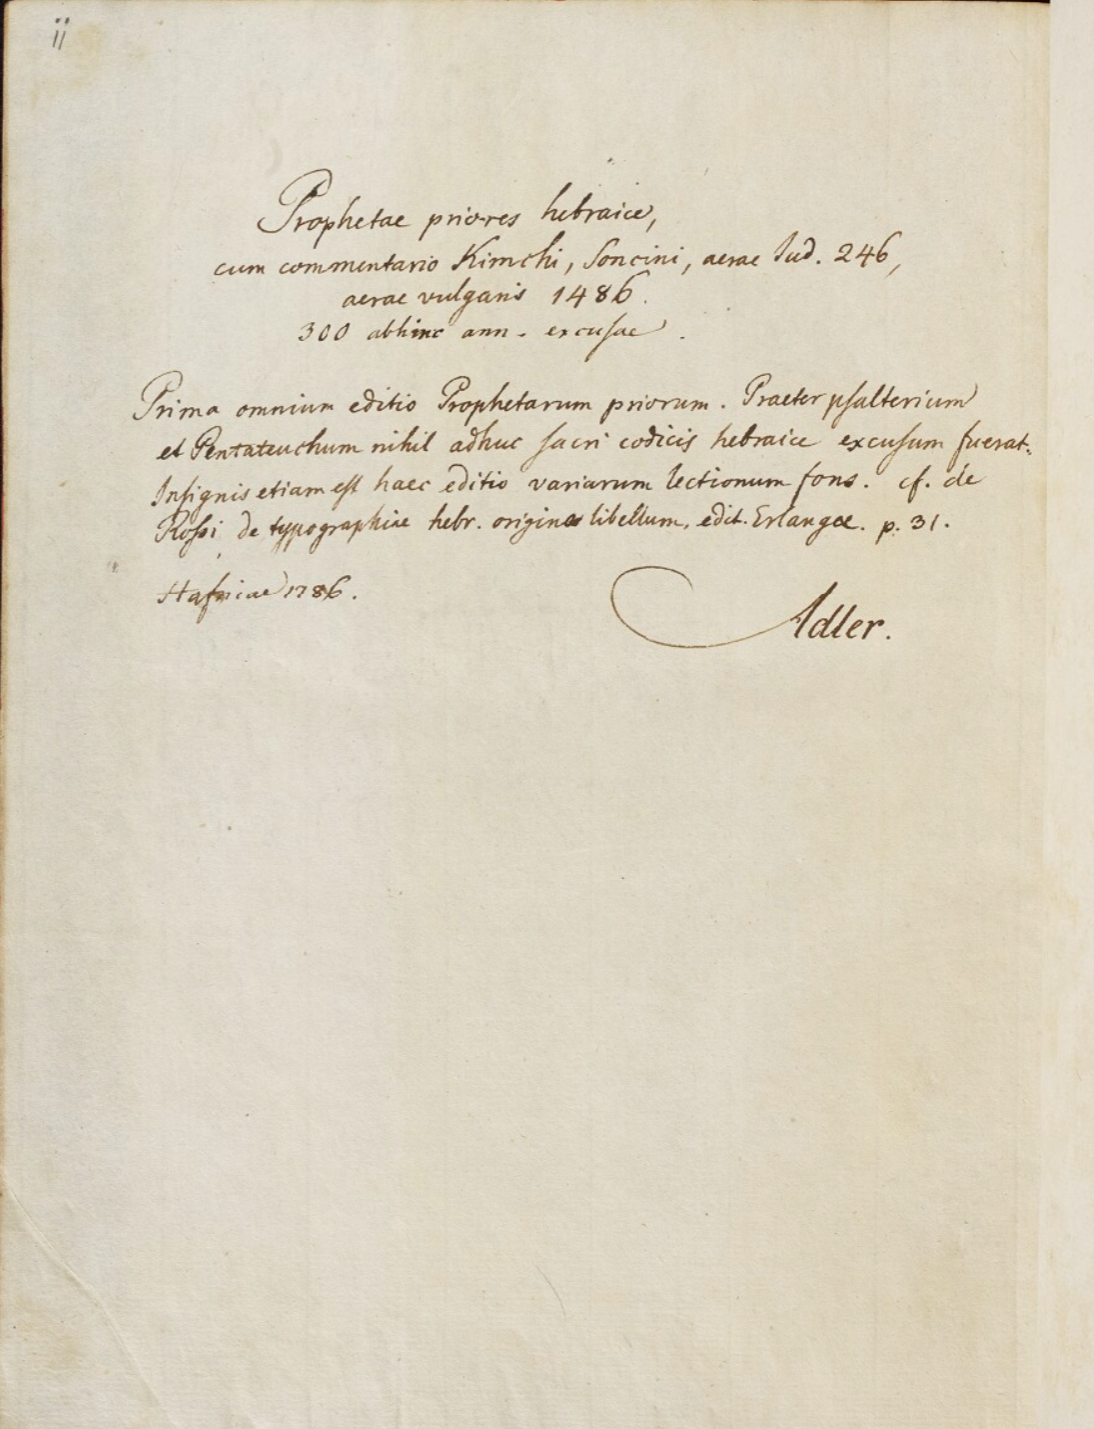 ii
Prophetae priores hebraice,
cum commentario Kimchi, Soncini, aerae Iud. 246,
aerae vulgaris 1486.
300 abhinc ann. excusae.
Prima omnium editio Prophetarum priorum. Praeter psalterium
et Pentateuchum nihil adhuc sacri codicis hebraice excusum fuerat.
Insignis etiam est haec editio variarum lectionum fons. cf. de
Rossi de typographiae hebr. origine libellum, edit. Erlangae. p. 31.
Hafniae 1786.
Adler.